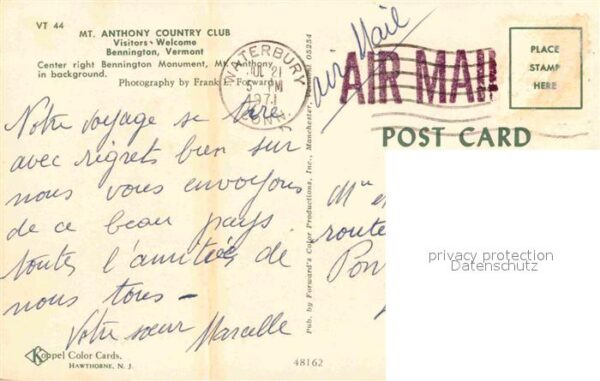 VT 44
MT. ANTHONY COUNTRY CLUB
Visitors Welcome
Bennington, Vermont
Center right Bennington Monument, Mt. Anthony
in background.
Photography by Frank L. Forward
WATERBURY
JUL 21
5 PM
1971
CONN.
Air Mail
AIR MAIL
PLACE
STAMP
HERE
POST CARD
Notre voyage se tire
avec regrets bien sur
nous vous envoyons
de ce beau pays
toutes l'amitiés de
nous tous —
Votre sœur Marcelle
Pub. by Forward's Color Productions, Inc., Manchester, Vermont 05254
route
Pon
privacy protection
Datenschutz
K
Koppel Color Cards.
HAWTHORNE, N. J.
48162